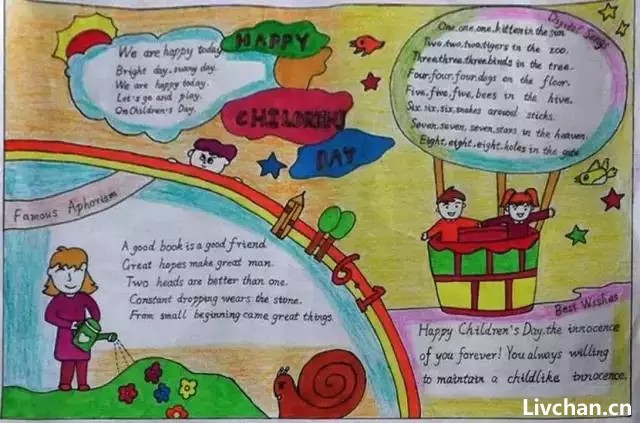 We are happy today
Bright day, sunny day.
We are happy today.
Let's go and play.
On Children's Day.
HAPPY
CHILDREN'S
DAY
Digital Songs
One,one,one,kitten in the sun
Two,two,two,tigers in the zoo.
Three,three,three,birds in the tree.
Four,four,four,dogs on the floor.
Five,five,five,bees in the hive.
Six,six,six,snakes around sticks.
Seven,seven,seven,stars in the heaven.
Eight,eight,eight,holes in the gate.
Famous Aphorism
A good book is a good friend
Great hopes make great man.
Two heads are better than one.
Constant dropping wears the stone.
From small beginning came great things.
6 1
Best Wishes
Happy Children's Day.the innocence
of you forever! You always willing
to maintain a childlike innocence.
Livchan.cn